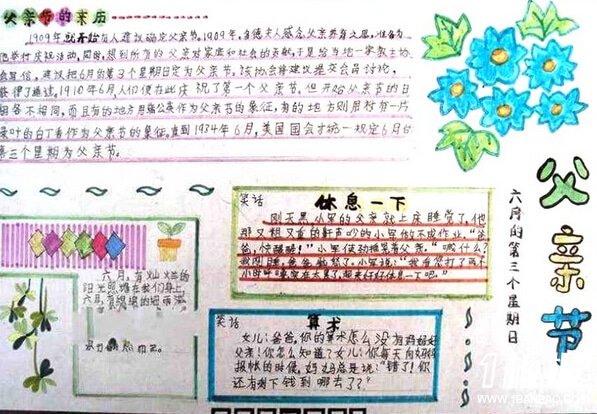 父亲节的来历
1909年就开始有人建议确定父亲节。1909年,多德夫人感念父亲养育之恩,准备为
他举行庆祝活动,同时,想到所有的父亲对家庭和社会的贡献,于是给当地一家教士协
会写信,建议把6月的第3个星期日定为父亲节。该协会将建议提交会员讨论,
获得了通过。1910年6月,人们便在此庆祝了第一个父亲节。但开始父亲节的日
期各不相同,而且有的地方用蒲公英作为父亲节的象征,有的地方则用衬有一片
绿叶的白丁香作为父亲节的象征,直到1934年6月,美国国会才统一规定6月的
第三个星期为父亲节。
父亲节
六月的第三个星期日
笑话
休息一下
刚天黑小军的父亲就上床睡觉了,他
那又粗又重的鼾声吵的小军做不成作业。"爸
爸,快醒醒!"小军使劲推晃着父亲。
小时呼噜实在太累了,起来好好休息一下吧。"
六月,有灿烂的
阳光照耀在我们身上,
六月,有绵绵的细雨滋
笑话
算术
女儿:爸爸,你的算术怎么没有妈妈好
父亲:你怎么知道?女儿:你每天向妈妈
报帐的时候,妈妈总是说:"错了!你
还有剩下钱到哪去了?"
www.1banbao.com